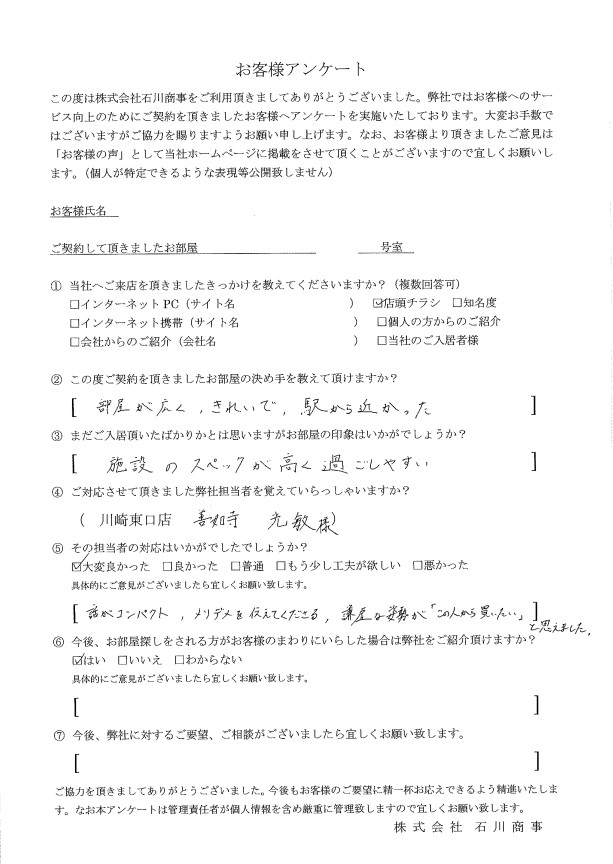 お客様アンケート
この度は株式会社石川商事をご利用頂きましてありがとうございました。弊社ではお客様へのサー
ビス向上のためにご契約を頂きましたお客様へアンケートを実施いたしております。大変お手数で
はございますがご協力を賜りますようお願い申し上げます。なお、お客様より頂きましたご意見は
「お客様の声」として当社ホームページに掲載をさせて頂くことがございますので宜しくお願いし
ます。（個人が特定できるような表現等公開致しません）
お客様氏名
ご契約して頂きましたお部屋 号室
① 当社へご来店を頂きましたきっかけを教えてくださいますか？（複数回答可）
□インターネット PC（サイト名 ） ☑店頭チラシ □知名度
□インターネット携帯（サイト名 ） □個人の方からのご紹介
□会社からのご紹介（会社名 ） □当社のご入居者様
② この度ご契約を頂きましたお部屋の決め手を教えて頂けますか？
[ 部屋が広く，きれいで，駅から近かった ]
③ まだご入居頂いたばかりかとは思いますがお部屋の印象はいかがでしょうか？
[ 施設のスペックが高く過ごしやすい ]
④ ご対応させて頂きました弊社担当者を覚えていらっしゃいますか？
（ 川崎東口店 善如寺 光敏様）
⑤ その担当者の対応はいかがでしたでしょうか？
☑大変良かった □良かった □普通 □もう少し工夫が欲しい □悪かった
具体的にご意見がございましたら宜しくお願い致します。
[ 話がコンパクト，メリデメを伝えてくださる，謙虚な姿勢が「この人から買いたい」]
と思えました。
⑥ 今後、お部屋探しをされる方がお客様のまわりにいらした場合は弊社をご紹介頂けますか？
☑はい □いいえ □わからない
具体的にご意見がございましたら宜しくお願い致します。
[ ]
⑦ 今後、弊社に対するご要望、ご相談がございましたら宜しくお願い致します。
[ ]
ご協力を頂きましてありがとうございました。今後もお客様のご要望に精一杯お応えできるよう精進いたしま
す。なお本アンケートは管理責任者が個人情報を含め厳重に管理致しますので宜しくお願い致します。
株式会社 石川商事